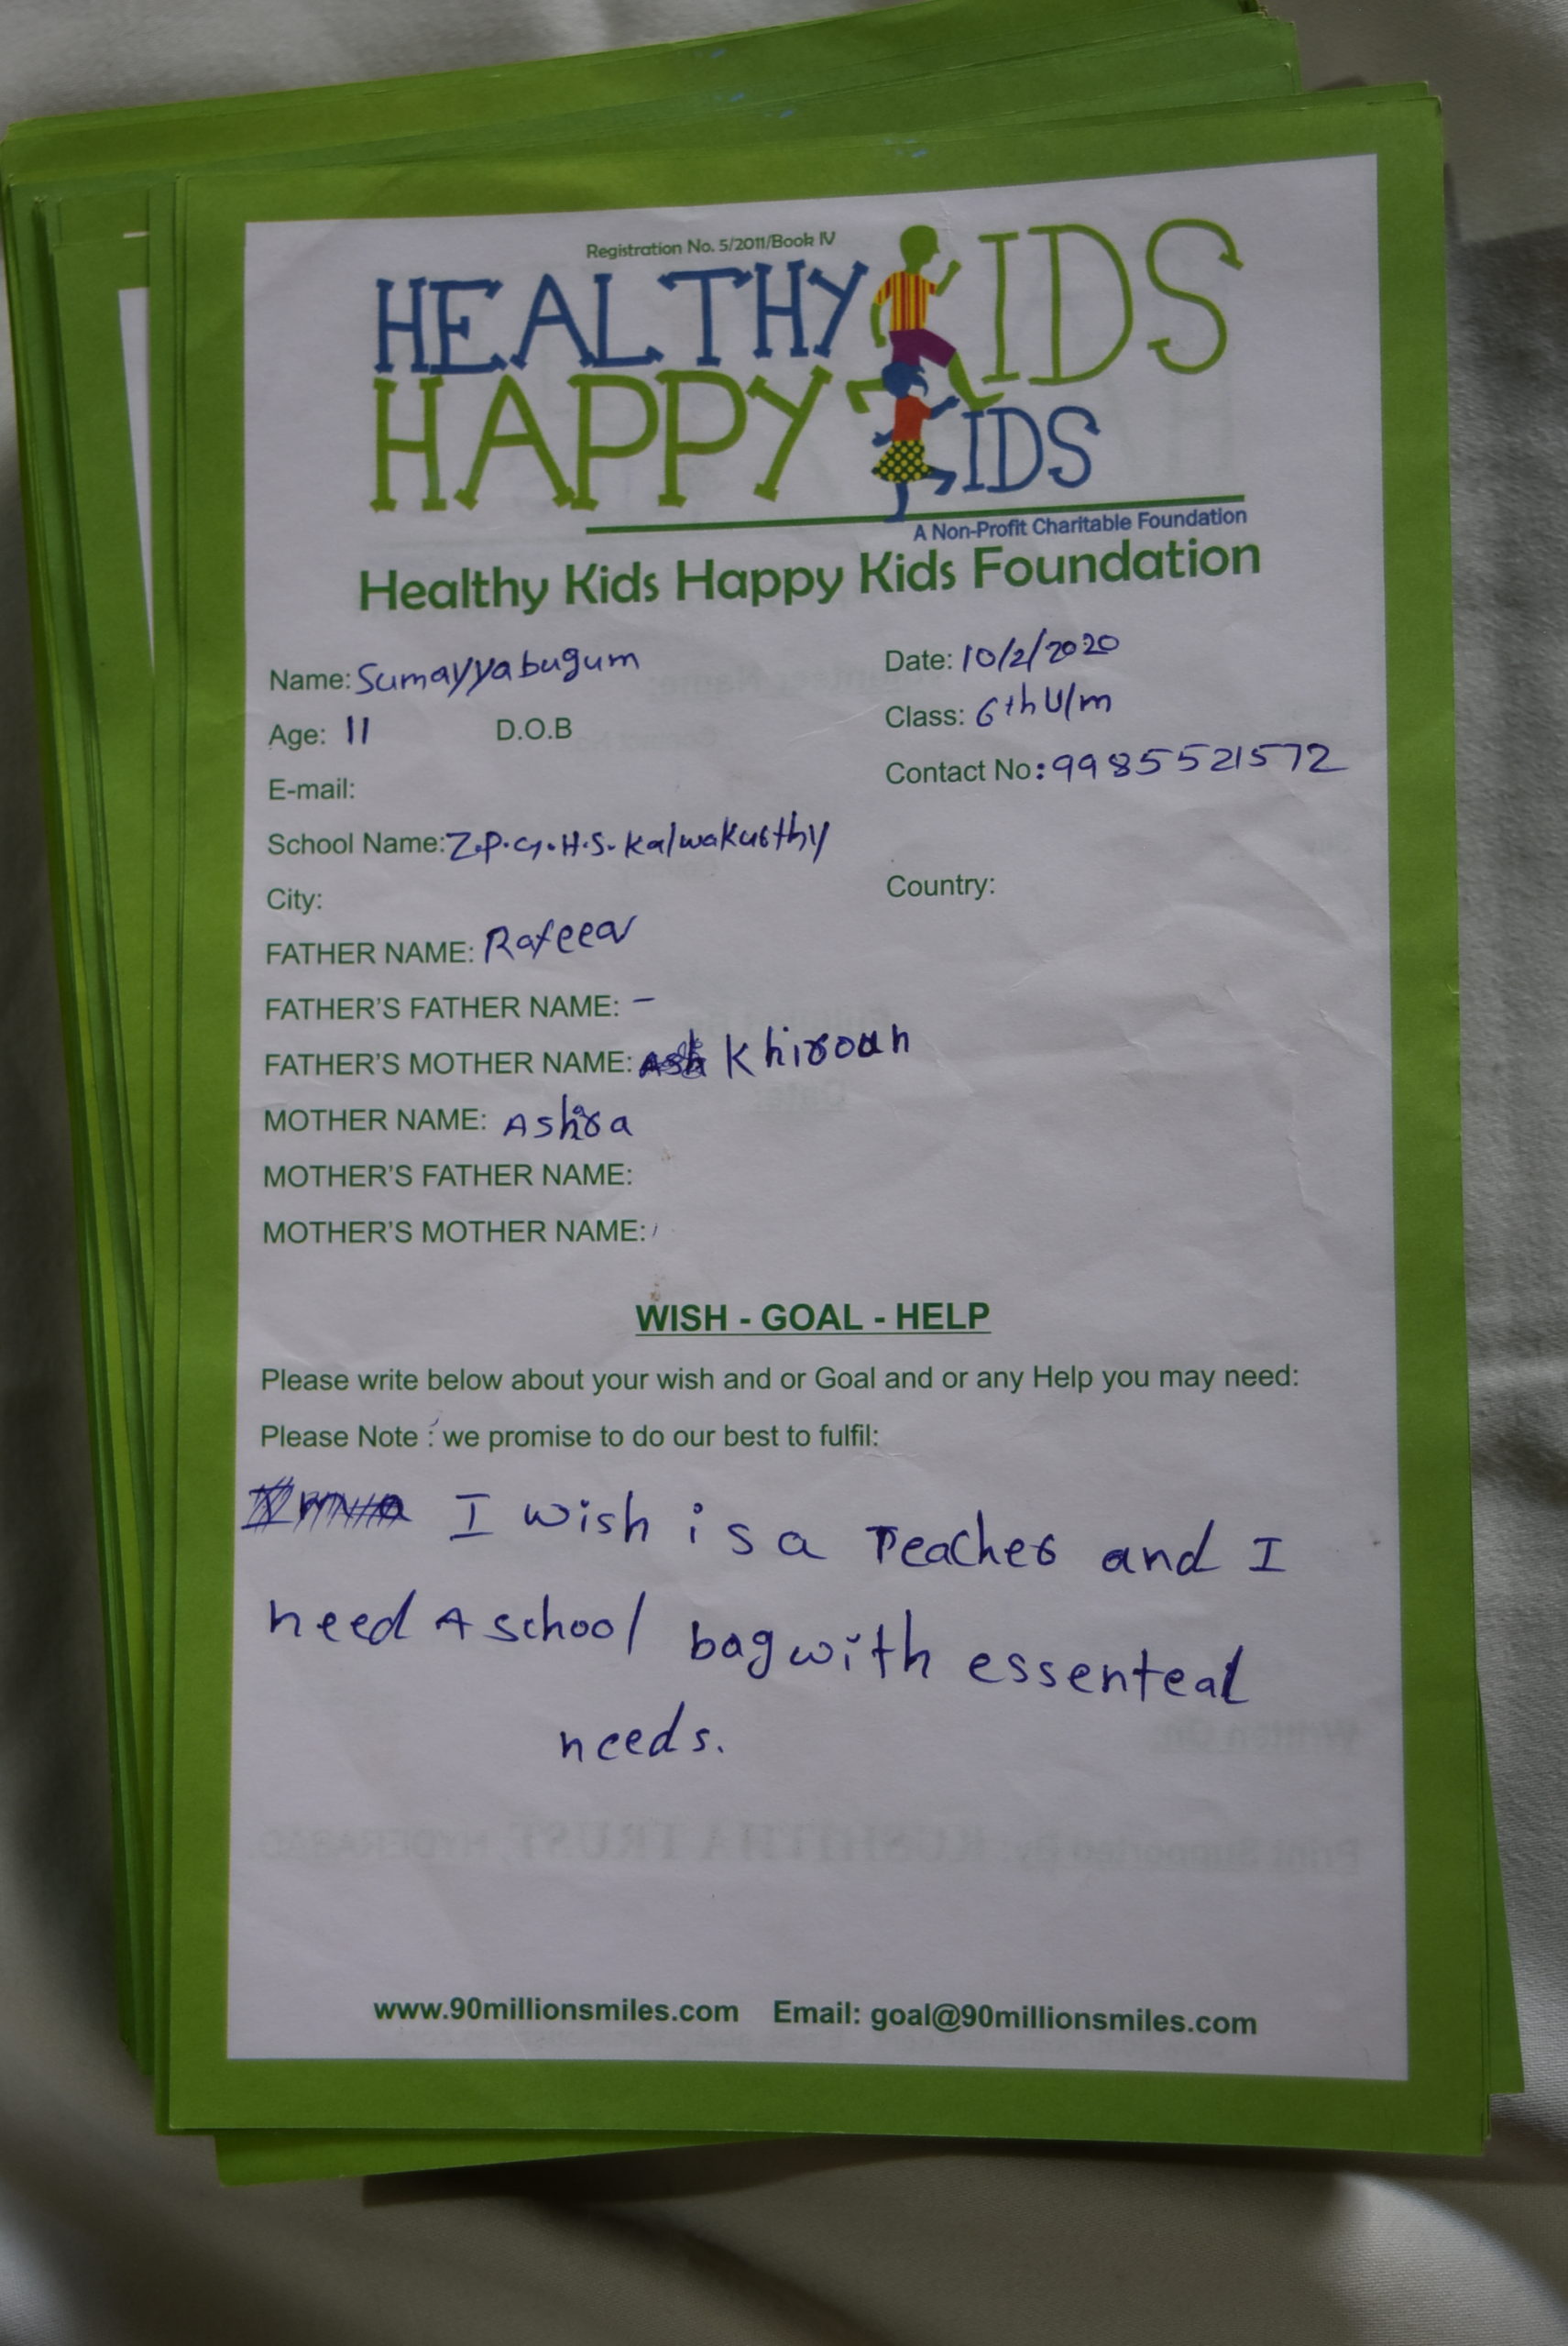 Registration No. 5/2011/Book IV
HEALTHY KIDS
HAPPY KIDS
A Non-Profit Charitable Foundation
Healthy Kids Happy Kids Foundation
Name: Sumayyabugum
Date: 10/2/2020
Age: 11 D.O.B
Class: 6th U/m
E-mail:
Contact No: 9985521572
School Name: Z.P.G.H.S. Kalwakurthy
City:
Country:
FATHER NAME: Rafeea
FATHER'S FATHER NAME: –
FATHER'S MOTHER NAME: Khiroun
MOTHER NAME: Ashra
MOTHER'S FATHER NAME:
MOTHER'S MOTHER NAME:
WISH - GOAL - HELP
Please write below about your wish and or Goal and or any Help you may need:
Please Note : we promise to do our best to fulfil:
I wish is a Teacher and I
need A school bag with essenteal
needs.
Print Supported By: RUSHITHA TRUST, HYDERABAD
www.90millionsmiles.com Email: goal@90millionsmiles.com